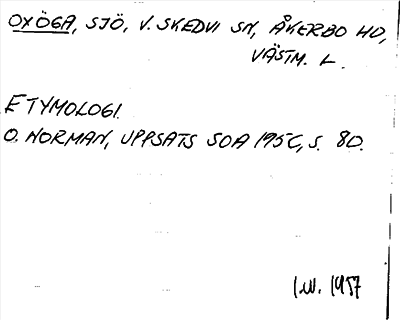 OXÖGA, SJÖ, V. SKEDVI SN, ÅKERBO HD,
VÄSTM. L.
ETYMOLOGI.
O. NORMAN, UPPSATS SOA 1956, S. 80.
I.W. 1957